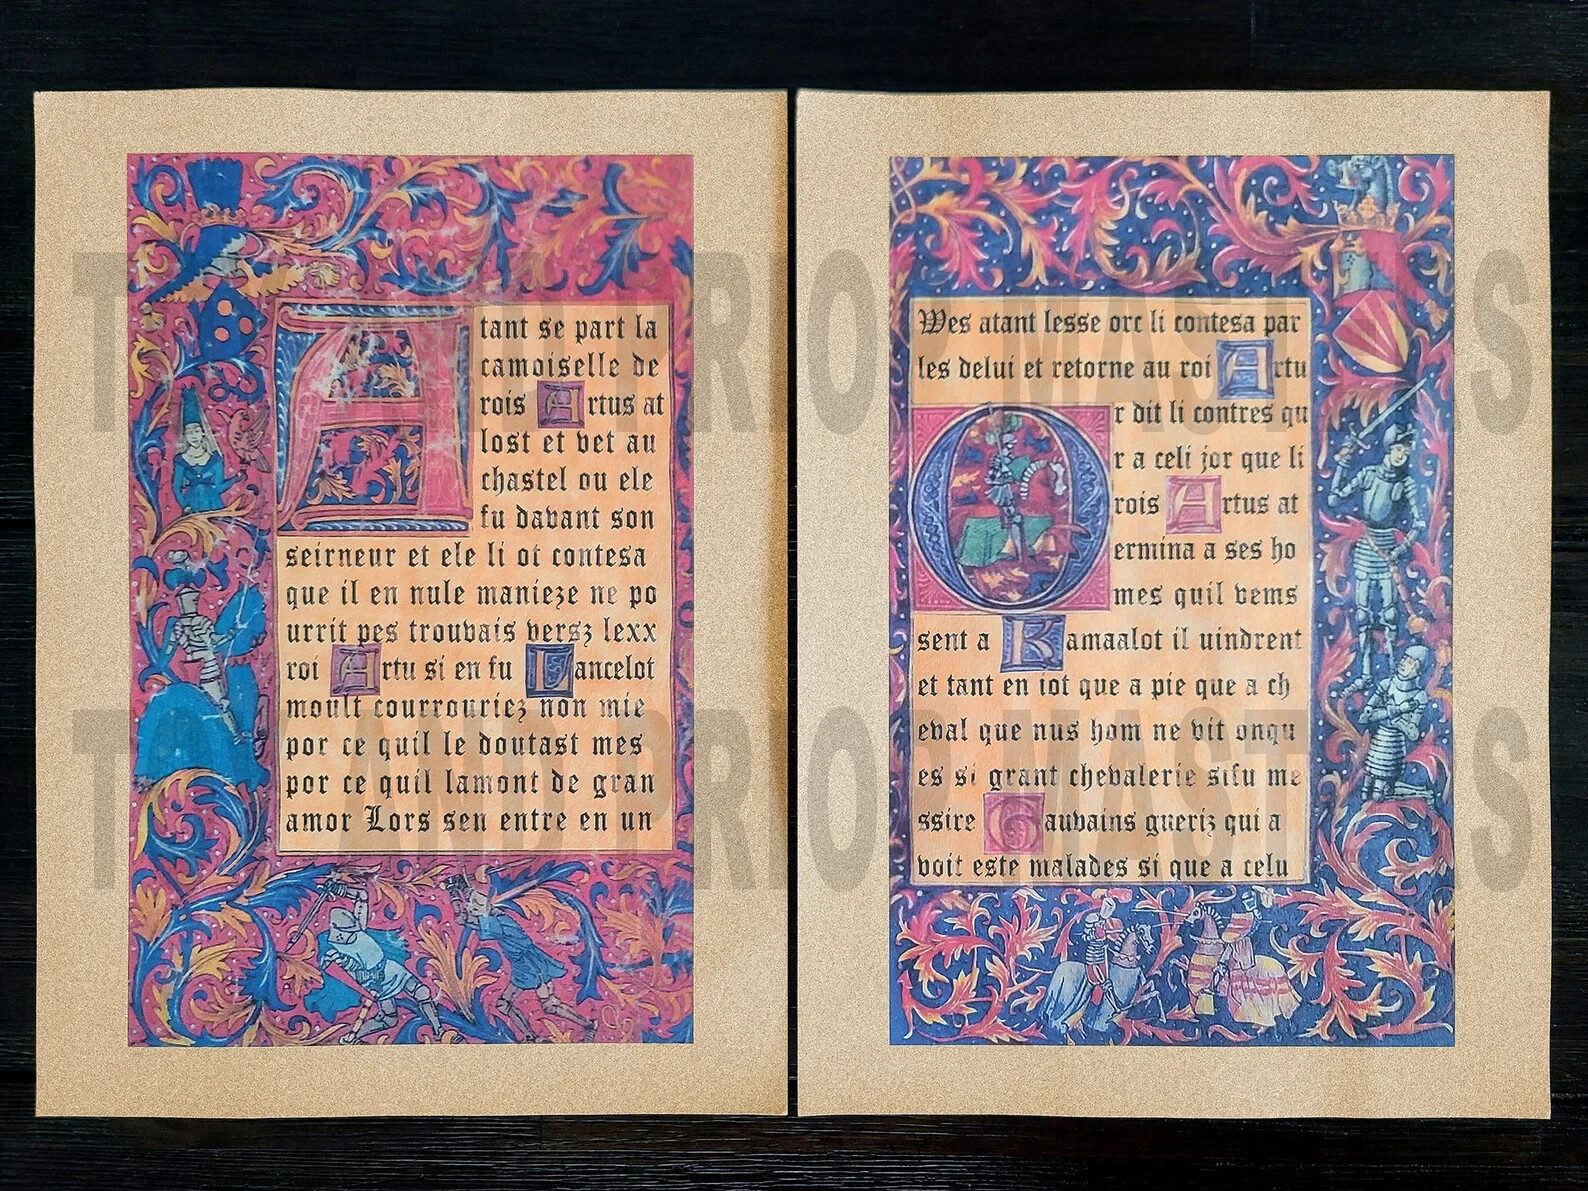 Atant se part la
camoiselle de
rois Artus at
lost et vet au
chastel ou ele
fu davant son
seirneur et ele li ot contesa
que il en nule manieze ne po
urrit pes trouvais versz lexx
roi Artu si en fu Lancelot
moult courrouriez non mie
por ce quil le doutast mes
por ce quil lamont de gran
amor Lors sen entre en un
Wes atant lesse orc li contesa par
les delui et retorne au roi Artu
Or dit li contres qu
r a celi jor que li
rois Artus at
ermina a ses ho
mes quil vems
sent a Kamaalot il uindrent
et tant en iot que a pie que a ch
eval que nus hom ne vit onqu
es si grant chevalerie sifu me
ssire Gauvains gueriz qui a
voit este malades si que a celu
AND PRIOP MAST
AND PRIOP MAST